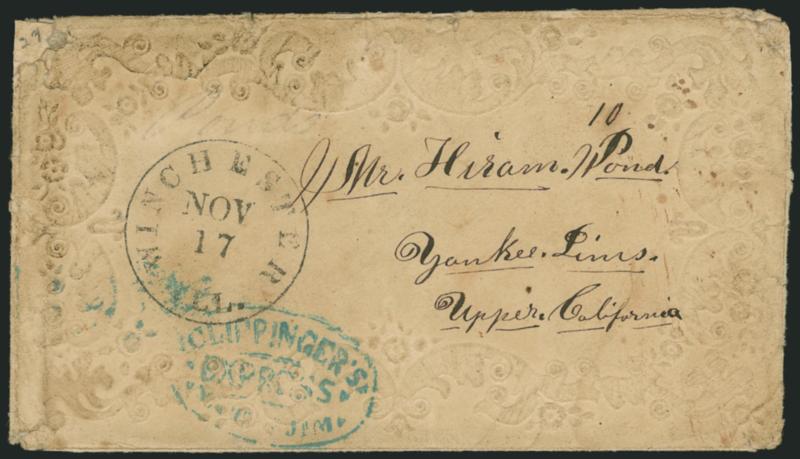 29
10
Mr. Hiram. Pond.
Yankee. Jims.
Upper. California
WINCHESTER
NOV
17
ILL.
CLIPPINGER'S
EXPRESS
JIM